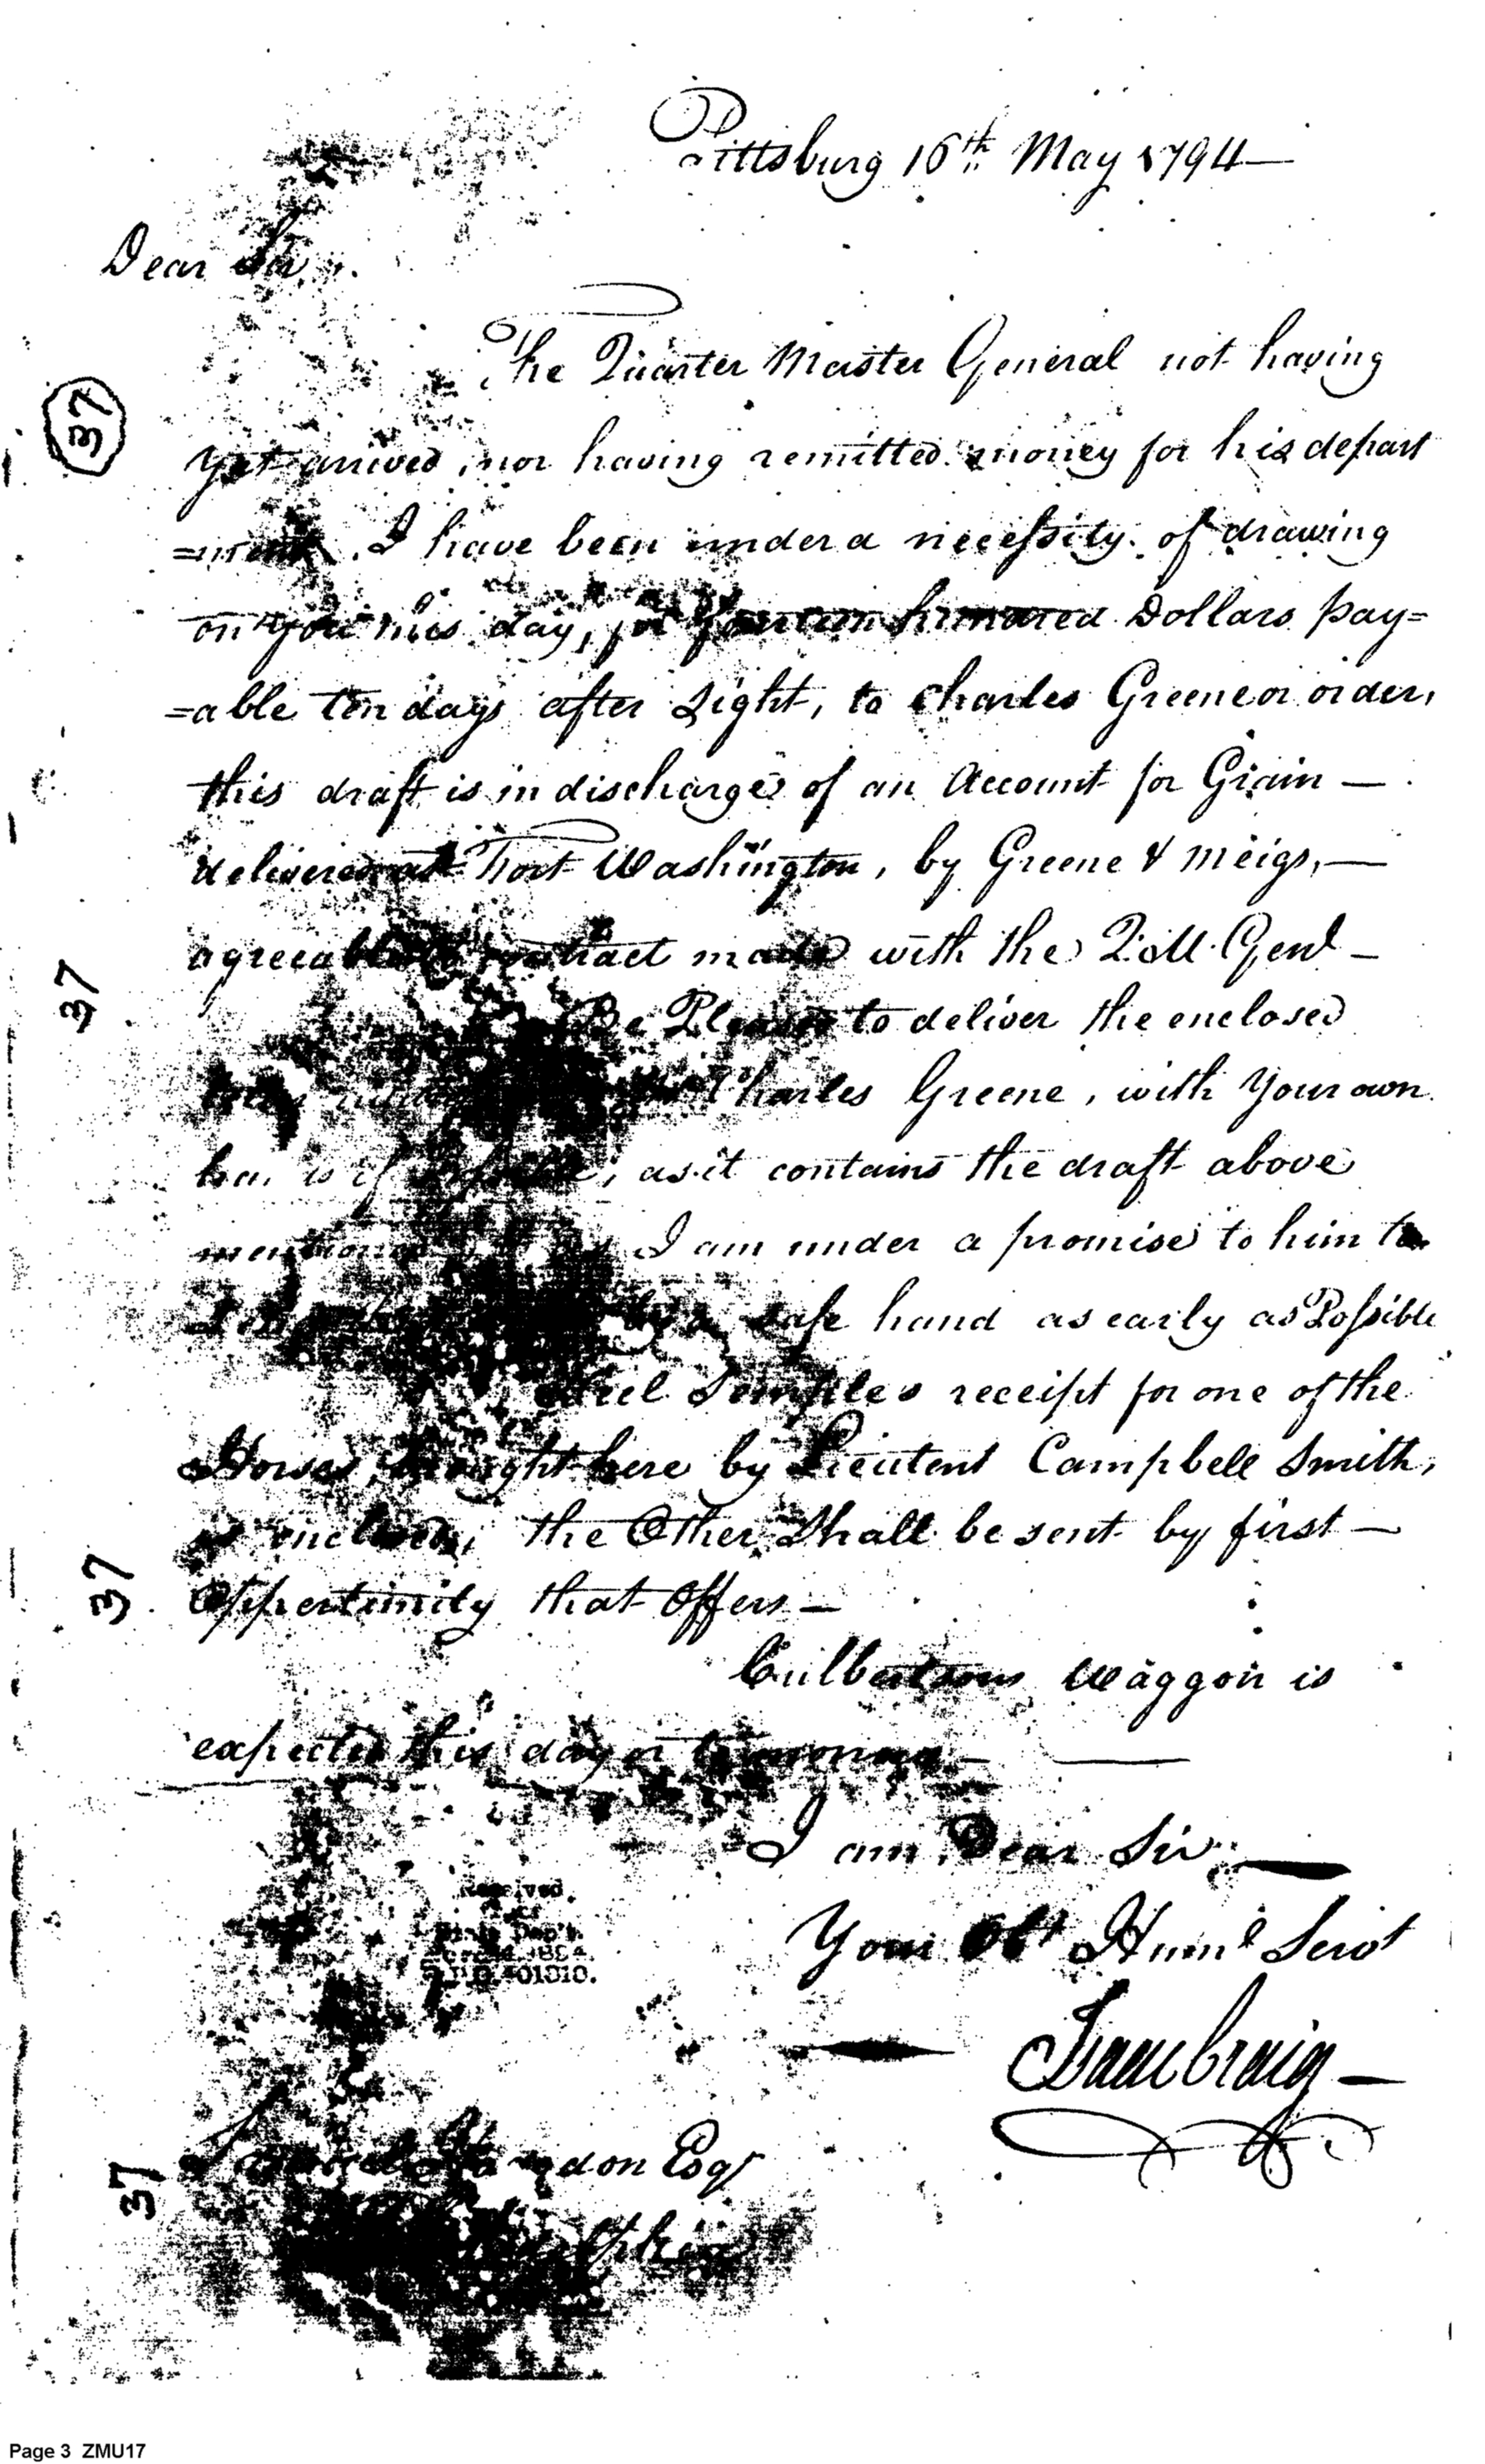 Pittsburg 16th May 1794—
Dear Sir,
The Quarter Master General not having
yet arrived, nor having remitted money for his depart
=ment, I have been under a necessity of drawing
on you this day, for fourteen hundred Dollars pay=
=able ten days after sight, to Charles Greene or order,
this draft is in discharge of an Account for Grain —
delivered at Fort Washington, by Greene & Meigs, —
agreeable to contract made with the Q. M. Genl —
Be Pleased to deliver the enclosed
Charles Greene, with Your own
if possible, as it contains the draft above
mentioned I am under a promise to him to
by a safe hand as early as Possible
Semples receipt for one of the
Horses brought here by Lieutent Campbell Smith,
enclosed, the Other Shall be sent by first —
Oppertunity that Offers —
Culbertsons Waggon is
expected this day or tomorrow —
I am Dear Sir —
Your Obt Humle Servt
Isaac Craig —
Samuel Hodgdon Esqr
Received
1894.
401010.
37
37
37
37
Page 3 ZMU17